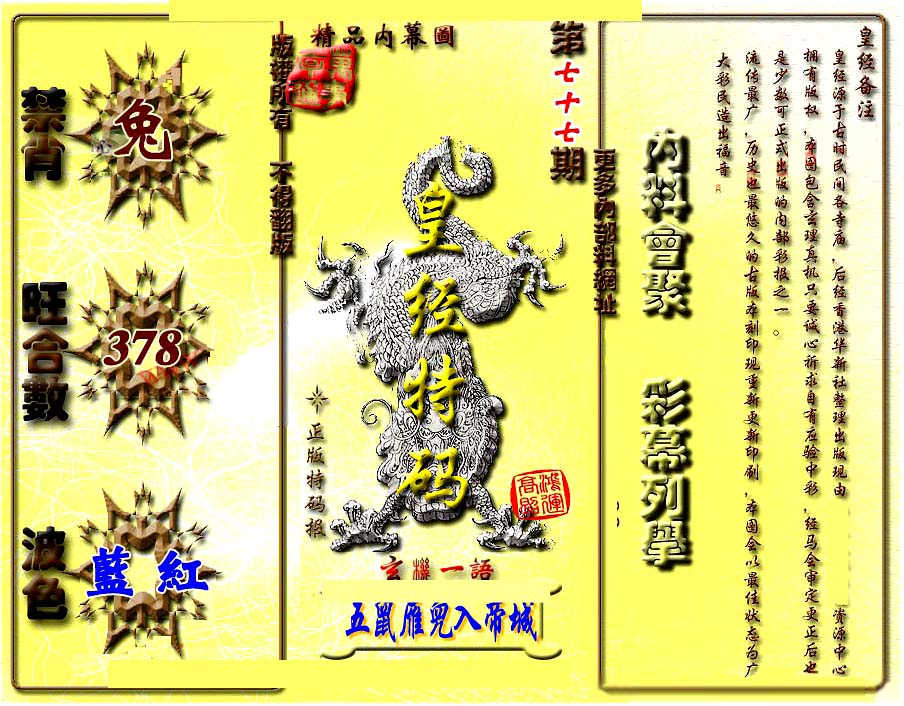 皇经备注
皇经源于古时民间各寺庙，后经香港华新社整理出版现由 资源中心
拥有版权，本图包含玄理真机只要诚心祈求自有应验中彩，经马会审定更正后也
是少数可正式出版的内部彩报之一。
流传最广，历史也最悠久的古版本刻印现重新更新印刷，本图会以最佳状态为广
大彩民造出福音
内料會聚
彩幕列舉
更多內部料網址
第七十七期
精品內幕圖
皇经特码
正版特码报
鴻運高照
玄機一語
五鼠雁兒入帝城
版權所有 不得翻版
禁肖
兔
旺合數
378
波色
藍 紅